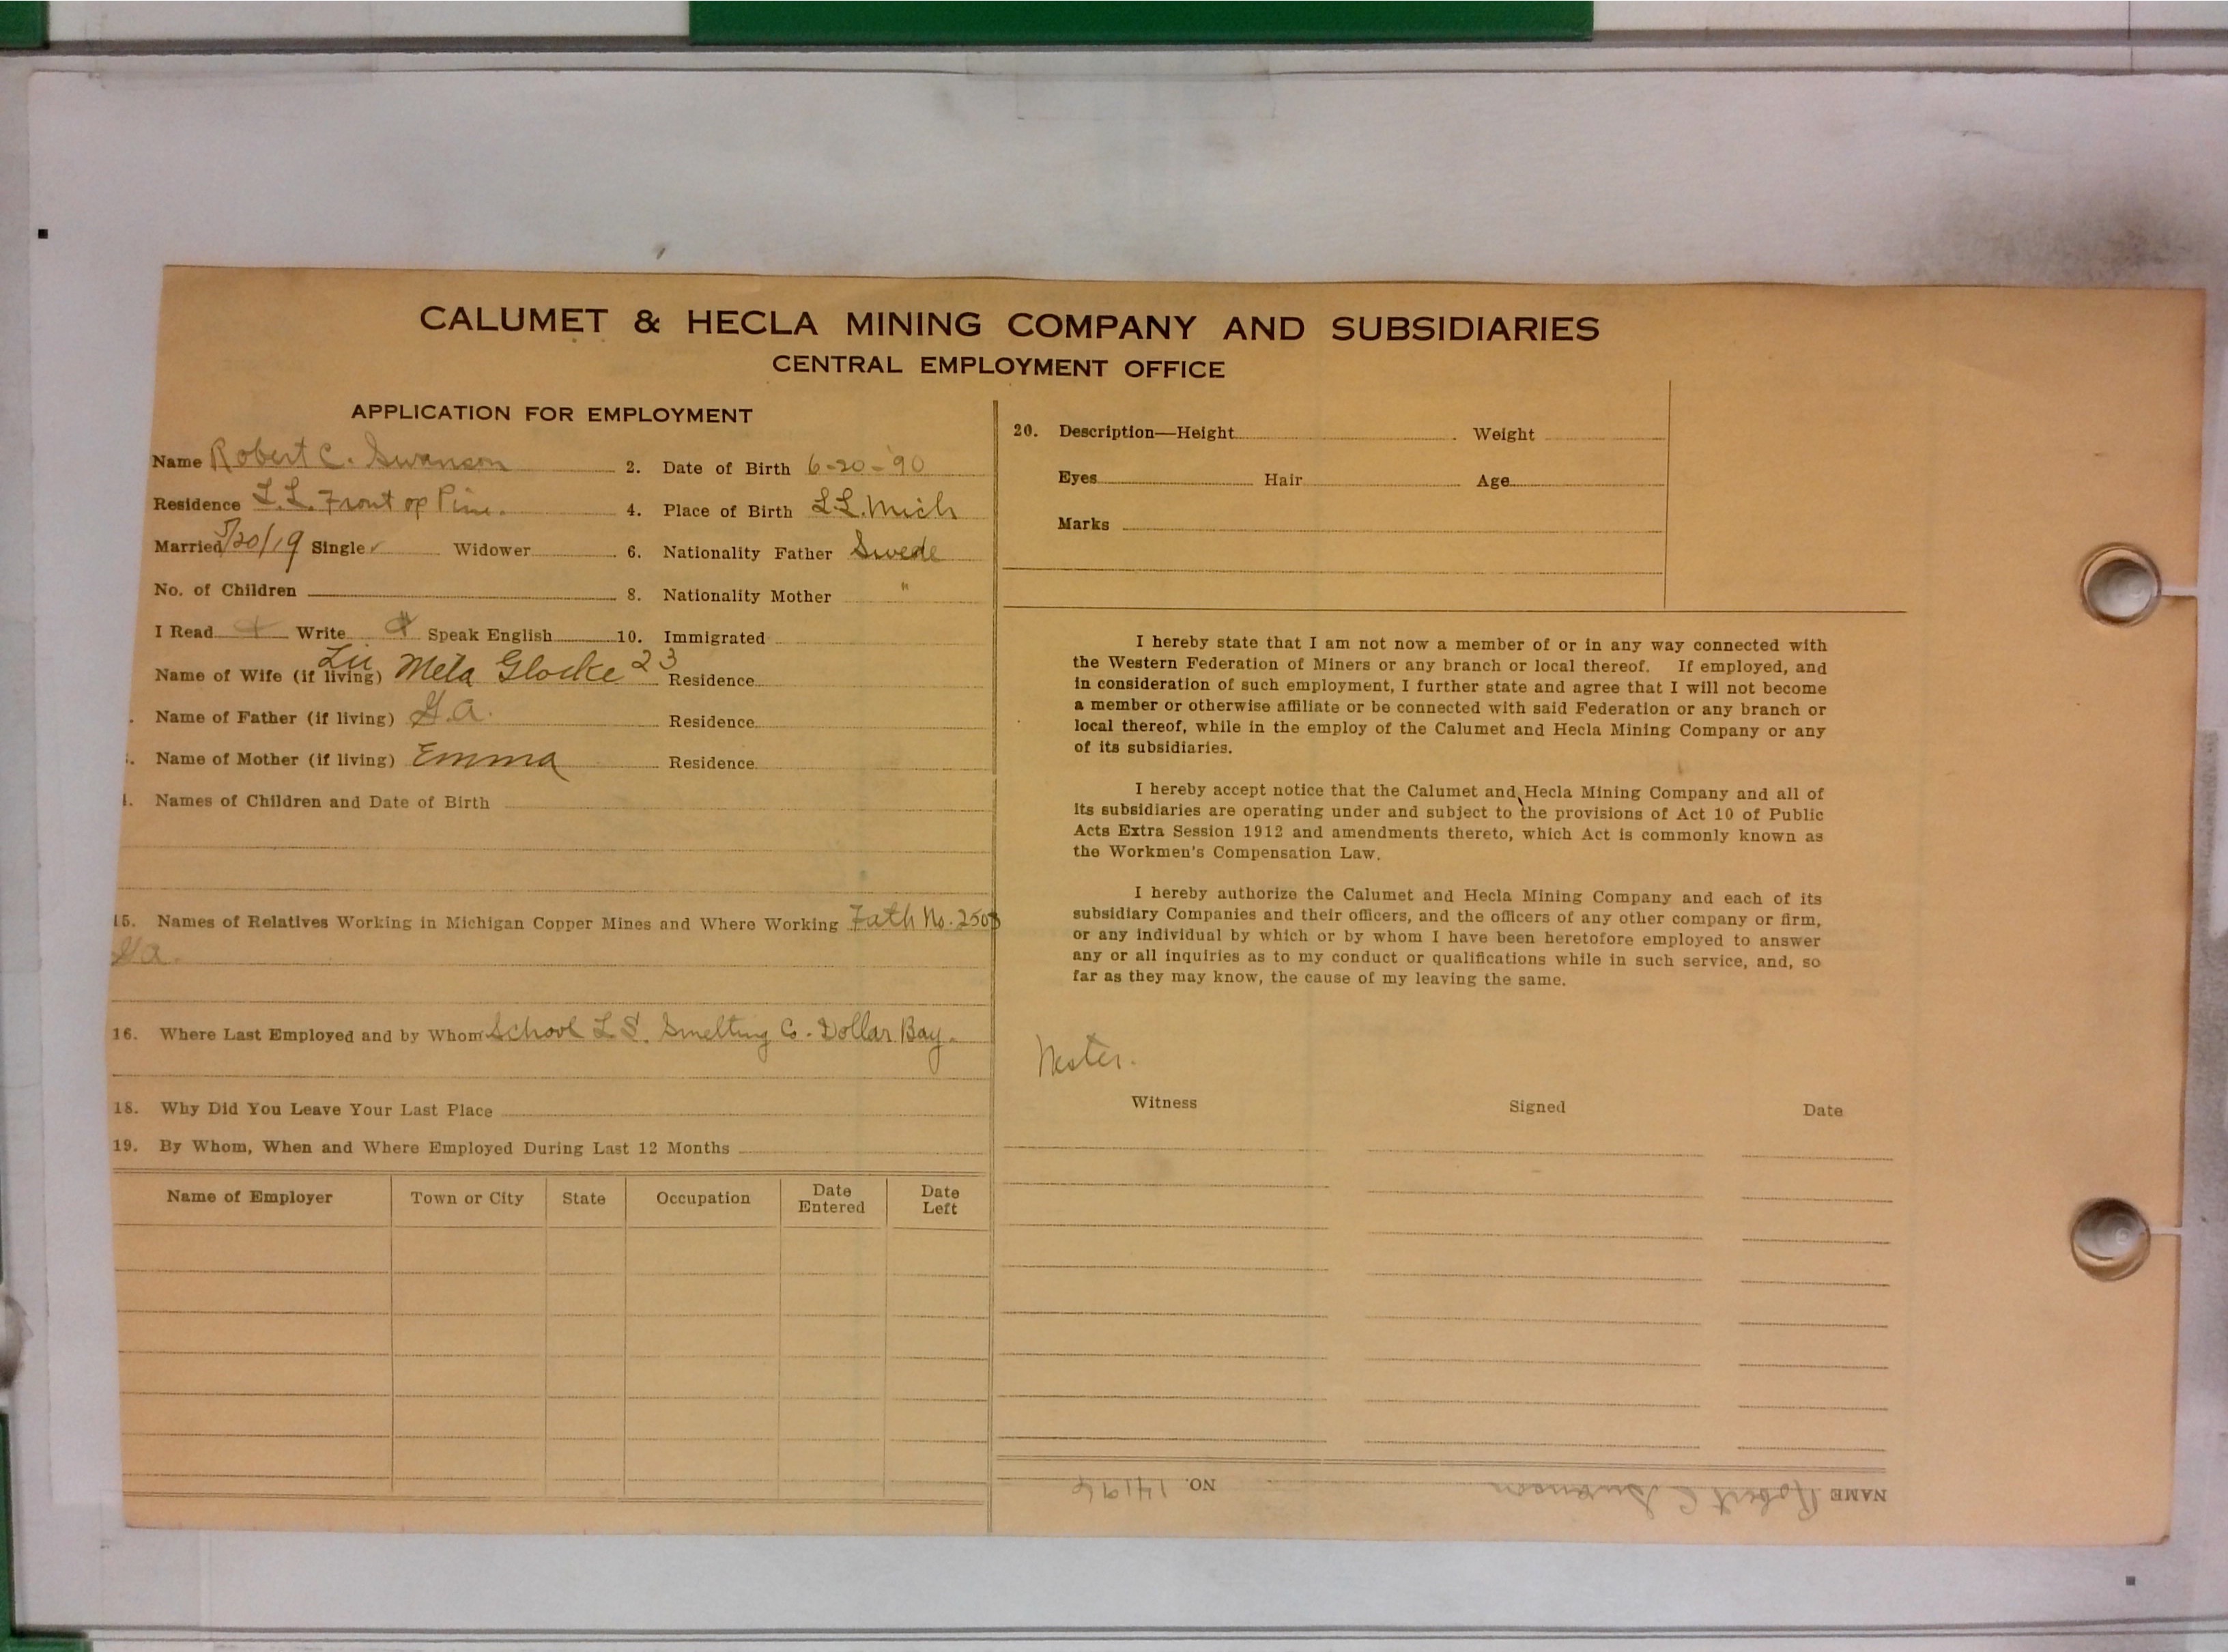 CALUMET & HECLA MINING COMPANY AND SUBSIDIARIES
CENTRAL EMPLOYMENT OFFICE
APPLICATION FOR EMPLOYMENT
Name Robert C. Swanson 2. Date of Birth 6-20-'90
Residence L.L. Front of Pine. 4. Place of Birth L.L. Mich
Married 5/20/19 Single ✓ Widower 6. Nationality Father Swede
No. of Children 8. Nationality Mother "
I Read Write Speak English 10. Immigrated
Name of Wife (if living) Meta Glocke 23 Residence
. Name of Father (if living) G.A. Residence
. Name of Mother (if living) Emma Residence
. Names of Children and Date of Birth
15. Names of Relatives Working in Michigan Copper Mines and Where Working Fath No. 2503
G.A.
16. Where Last Employed and by Whom School L S. Smelting Co. Dollar Bay.
18. Why Did You Leave Your Last Place
19. By Whom, When and Where Employed During Last 12 Months
Name of Employer Town or City State Occupation Date Entered Date Left
20. Description—Height Weight
Eyes Hair Age
Marks
I hereby state that I am not now a member of or in any way connected with
the Western Federation of Miners or any branch or local thereof. If employed, and
in consideration of such employment, I further state and agree that I will not become
a member or otherwise affiliate or be connected with said Federation or any branch or
local thereof, while in the employ of the Calumet and Hecla Mining Company or any
of its subsidiaries.
I hereby accept notice that the Calumet and Hecla Mining Company and all of
its subsidiaries are operating under and subject to the provisions of Act 10 of Public
Acts Extra Session 1912 and amendments thereto, which Act is commonly known as
the Workmen's Compensation Law.
I hereby authorize the Calumet and Hecla Mining Company and each of its
subsidiary Companies and their officers, and the officers of any other company or firm,
or any individual by which or by whom I have been heretofore employed to answer
any or all inquiries as to my conduct or qualifications while in such service, and, so
far as they may know, the cause of my leaving the same.
Nester.
Witness Signed Date
NAME Robert C Swanson NO. 14196